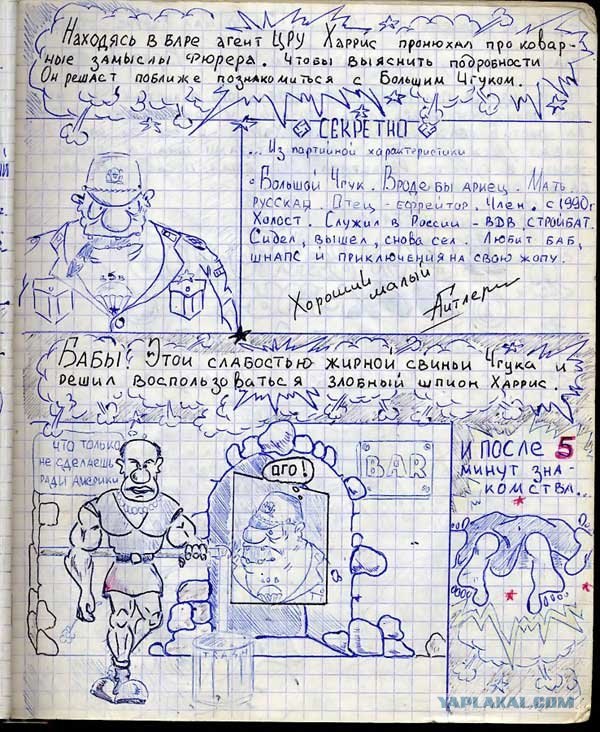 Находясь в баре агент ЦРУ Харрис пронюхал про ковар-
ные замыслы Фюрера. Чтобы выяснить подробности
Он решает поближе познакомиться с Большим Чгуком.
СЕКРЕТНО
... Из партийной характеристики
Большой Чгук. Вроде бы ариец. Мать
русская. Отец - ефрейтор. Член. с 1990г
Холост. Служил в России - ВДВ, стройбат.
Сидел, вышел, снова сел. Любит баб,
шнапс и приключения на свою жопу.
Хороший
малый
Гитлер
Бабы! Этой слабостью жирной свиньи Чгука и
решил воспользоваться злобный шпион Харрис.
что только
не сделаешь
ради Америки
ОГО!
BAR
И ПОСЛЕ 5
минут зна-
комства...
TRASH
YAPLAKAL.COM